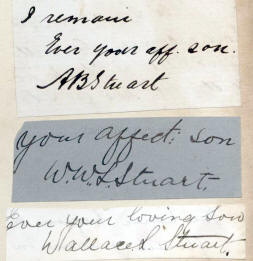 I remain
Ever your aff. son.
ABStuart
your affect: son
W.W.S.Stuart.
Ever your loving son
Wallace S. Stuart.